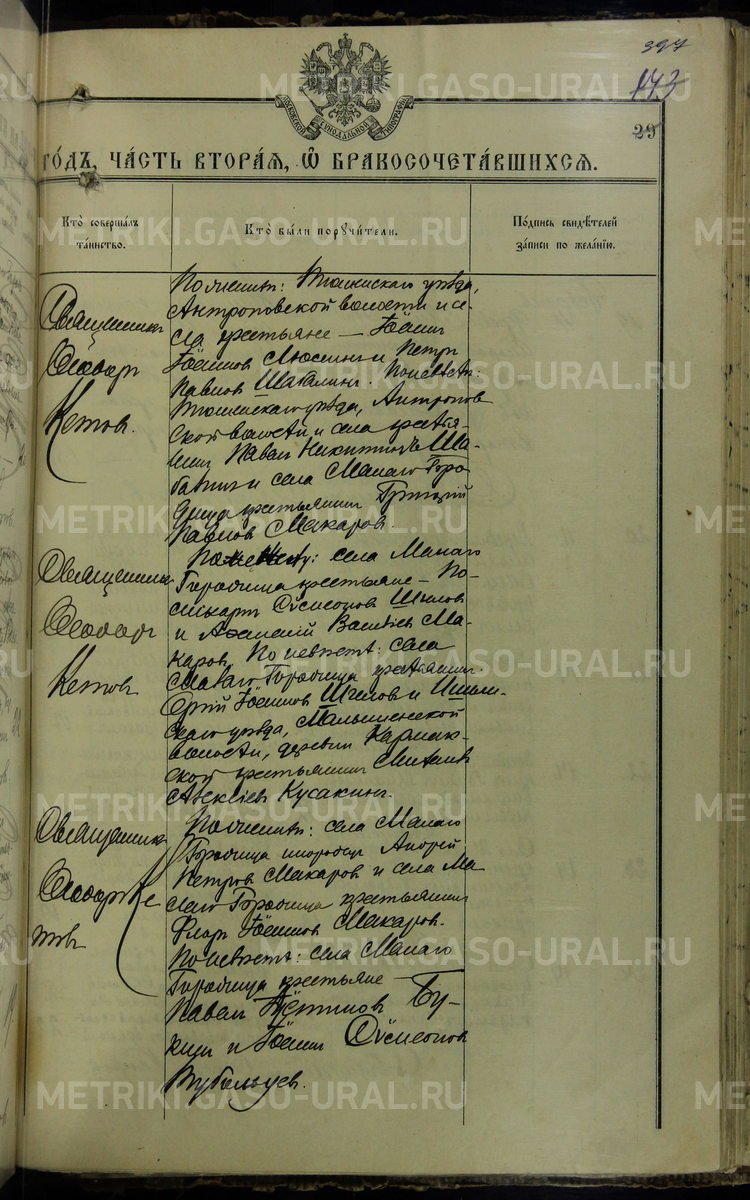 397
143
МОСКОВСКОЙ СѴНОДАЛЬНОЙ ТИПОГРАФІИ
29
го́дъ, ча́сть втора́я, ѡ҆ бракосочета́вшихся.
Кто̀ соверша́лъ та́инство.
Кто̀ бы́ли порꙋчи́тели.
По́дпись свидѣ́телей за́писи по жела́нію.
Священникъ
Ѳеодоръ
Кетовъ.
По жениху: Тюменскаго уѣзда,
Антроповской волости и се-
ла крестьяне — Іоаннъ
Іоанновъ и Петръ
Павловъ Шабалины. По невѣстѣ:
Тюменскаго уѣзда, Антропов
ской волости и села крестья-
нинъ Павелъ Никитинъ Ша-
балинъ и села Малаго Горо-
дища крестьянинъ Григорій
Павловъ Макаровъ.
Священникъ
Ѳеодоръ
Кетовъ
По жениху: села Малаго
Городища крестьяне — По-
ликарпъ Сѵмеоновъ Шиловъ
и Василіевъ Ма-
каровъ. По невѣстѣ: села
Малаго Городища крестьянинъ
Іоанновъ Шиловъ и
скаго уѣзда, Малышенской
волости, деревни Кармак-
ской крестьянинъ
Алексіевъ Кусакинъ.
Священникъ
Ѳеодоръ Ке
товъ
По жениху: села Малаго
Городища инородецъ Андрей
Петровъ Макаровъ и села Ма
лаго Городища крестьянинъ
Флоръ Іоанновъ Макаровъ.
По невѣстѣ: села Малаго
Городища крестьяне —
Павелъ Бу-
кинъ и Іоаннъ Сѵмеоновъ
METRIKI.GASO-URAL.RU